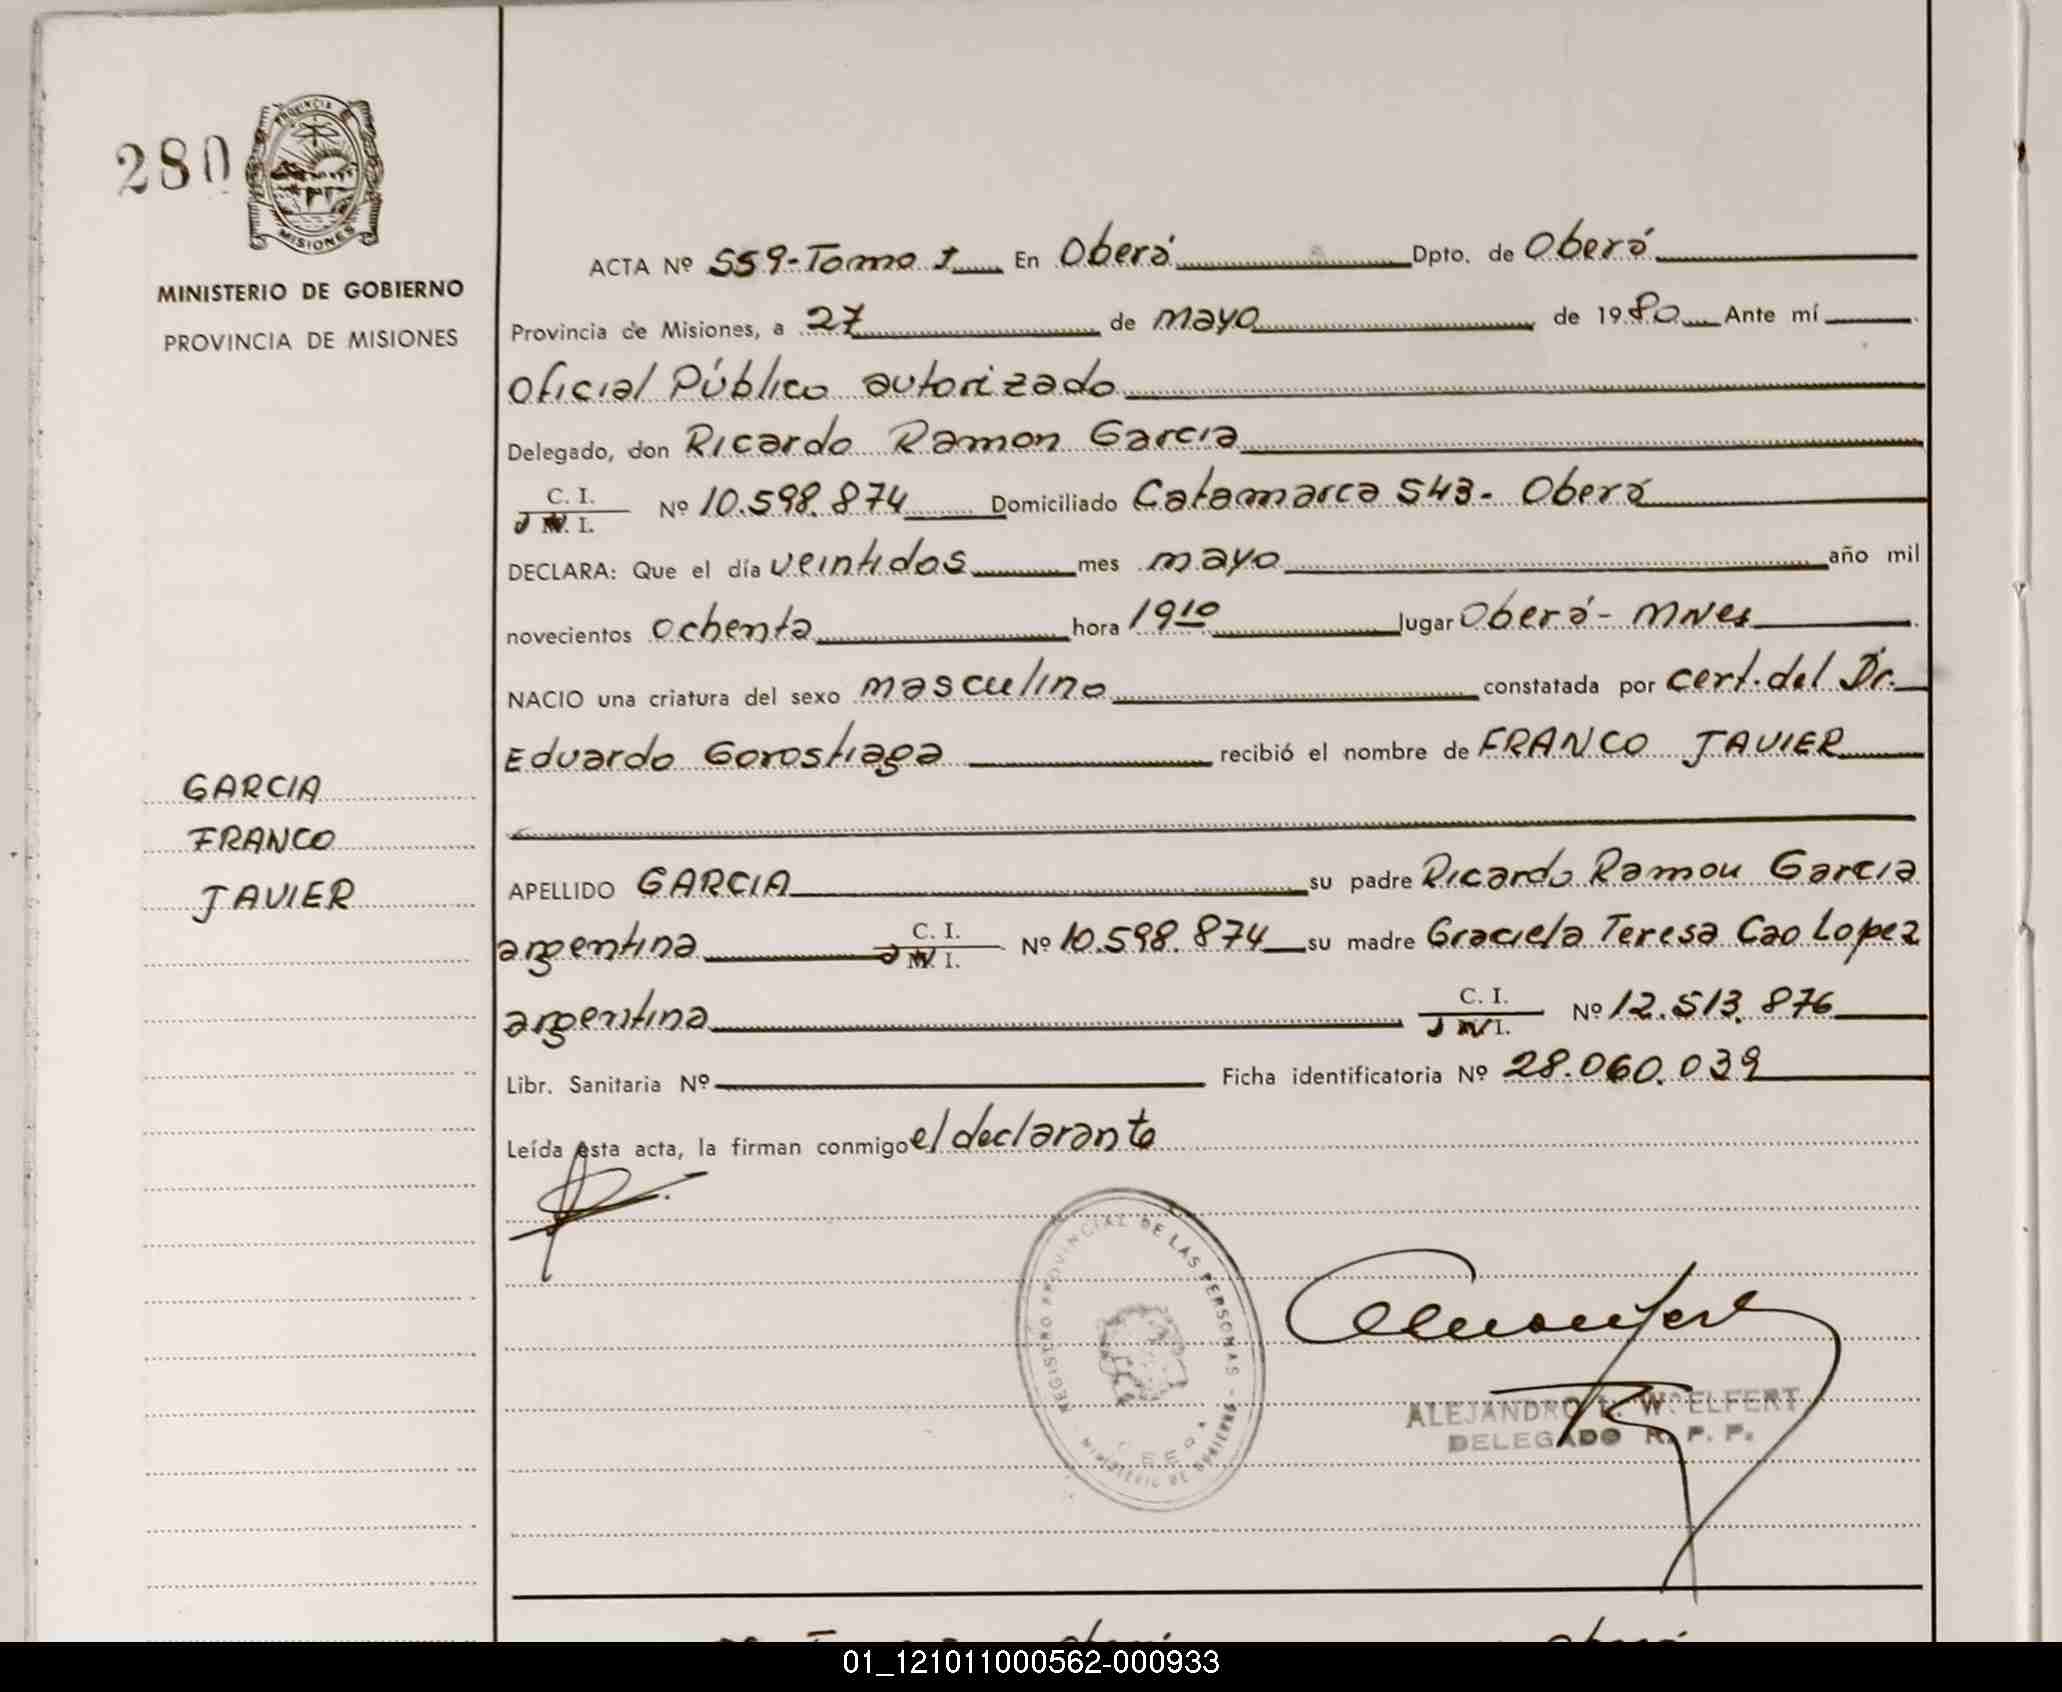 280
PROVINCIA
MISIONES
MINISTERIO DE GOBIERNO
PROVINCIA DE MISIONES
GARCIA
FRANCO
JAVIER
ACTA Nº 559-Tomo 1 En Oberá Dpto. de Oberá
Provincia de Misiones, a 27 de mayo de 1980 Ante mí
Oficial Público autorizado
Delegado, don Ricardo Ramon Garcia
C. I. Nº 10.598.874 Domiciliado Catamarca 543- Oberá
DECLARA: Que el día veintidos mes mayo año mil
novecientos ochenta hora 19 10 lugar Oberá- MNes
NACIO una criatura del sexo masculino constatada por cert. del Dr.
Eduardo Gorostiaga recibió el nombre de FRANCO JAVIER
APELLIDO GARCIA su padre Ricardo Ramon Garcia
argentina C. I. Nº 10.598.874 su madre Graciela Teresa Cao Lopez
argentina C. I. Nº 12.513.876
Libr. Sanitaria Nº Ficha identificatoria Nº 28.060.039
Leída esta acta, la firman conmigo el declarante
REGISTRO PROVINCIAL DE LAS PERSONAS - MINISTERIO DE GOBIERNO
ALEJANDRO L. WOELFERT
DELEGADO R. P. P.
01_121011000562-000933